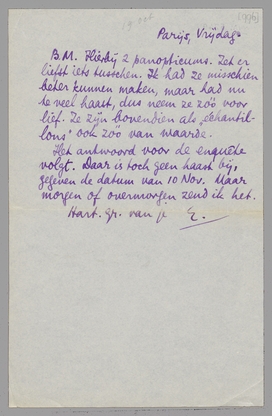 19 oct
[1936]
Parijs, Vrijdag.
B.M. Hierbij 2 panopticums. Zet er
liefst iets tusschen. Ik had ze misschien
beter kunnen maken, maar had nu
te veel haast, dus neem ze zóó voor
lief. Ze zijn bovendien als „échantil-
lons" ook zóó van waarde.
Het antwoord voor de enquête
volgt. Daar is toch geen haast bij,
gegeven de datum van 10 Nov. Maar
morgen of overmorgen zend ik het.
Hart. gr. van je E.